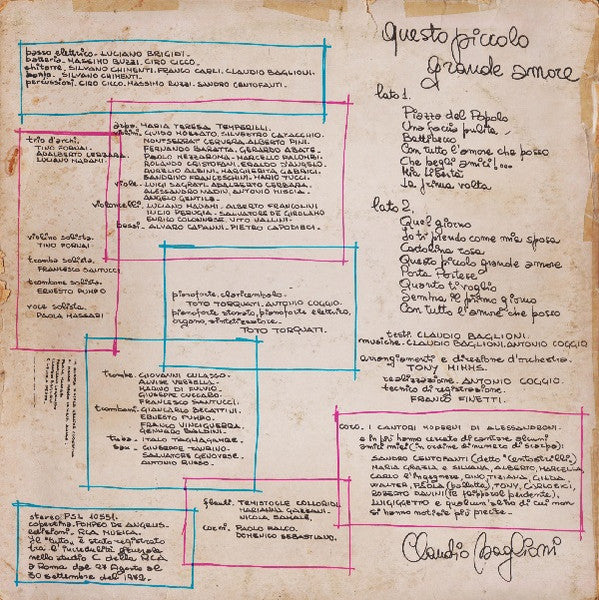 basso elettrico - LUCIANO BRIGIDI.
batteria - MASSIMO BUZZI, CIRO CICCO.
chitarre - SILVANO CHIMENTI, FRANCO CARLI, CLAUDIO BAGLIONI.
banjo - SILVANO CHIMENTI.
percussioni - CIRO CICCO, MASSIMO BUZZI, SANDRO CENTOFANTI.
trio d'archi.
TINO FORNAI,
ADALBERTO CERBARA,
LUCIANO MADAMI.
violino solista.
TINO FORNAI
tromba solista.
FRANCESCO SANTUCCI.
trombone solista.
ERNESTO PUMPO
voce solista.
PAOLA MASSARI
arpa - MARIA TERESA TEMPERILLI.
violini - GUIDO MOZZATO, SILVESTRO CATACCHIO,
MONTSERRAT CERVERA, ALBERTO PINI,
FERNANDO BARATTA, GERARDO ABATE,
PAOLO MEZZAROMA, MARCELLO PALOMBI,
ROLANDO CRISTOFANI, ERALDO D'ANGELO,
AURELIO ALBINI, MARGHERITA GABRICI,
SANDRINO FRANCESCHINI, MARIO TUCCI.
viole - LUIGI SAGRATI, ADALBERTO CERBARA,
ALESSANDRO NADIN, ANTONIO MISCIA,
ANGELO GENTILE.
violoncelli - LUCIANO MADAMI, ALBERTO FRANCOLINI
LUCIO PERUGIA, SALVATORE DE GIROLAMO
ENRICO COLONNESE, VITO VALLINI.
bassi - ALVARO CAPANNI, PIETRO CAPODIECI.
pianoforte, claricembalo.
TOTO TORQUATI, ANTONIO COGGIO.
pianoforte stonato, pianoforte elettrico,
organo, sintetizzatore.
TOTO TORQUATI.
trombe - GIOVANNI CULASSO,
MARINO DI FULVIO,
GIUSEPPE CUCCARO,
FRANCESCO SANTUCCI.
tromboni - GIANCARLO BECATTINI,
ERNESTO PUMPO,
FRANCO VINCIGUERRA,
GENNARO BALDINI.
tuba - ITALO TAGNAGANNE.
sax - GIUSEPPE TAURINO,
SALVATORE GENOVESE,
ANTONIO RUSSO.
flauti - TEMISTOCLE COLLORIDI,
MARIANNA GAZZANI,
NICOLA SAMALE.
corni - PAOLO FALCO,
DOMENICO SEBASTIANO.
stereo PSL 10551.
copertina - POMPEO DE ANGELIS.
edizioni - RCA MUSICA.
Il "tutto" è stato registrato
tra l'incredulità generale
nello studio C della RCA
a Roma dal 27 Agosto al
30 settembre del 1972.
Questo piccolo
grande amore
lato 1.
Piazza del Popolo
Una faccia pulita
Battibecco
Con tutto l'amore che posso
Che begli amici!...
Mia libertà
La prima volta
lato 2.
Quel giorno
Io ti prendo come mia sposa
Cartolina rosa
Questo piccolo grande amore
Porta Portese
Quanto ti voglio
Sembra il primo giorno
Con tutto l'amore che posso
testi. CLAUDIO BAGLIONI.
musiche. CLAUDIO BAGLIONI, ANTONIO COGGIO
arrangiamenti e direzione d'orchestra.
TONY MIMMS.
realizzazione. ANTONIO COGGIO
tecnico di registrazione.
FRANCO FINETTI.
coro. I CANTORI MODERNI DI ALESSANDRONI.
e in più hanno cercato di cantare alcuni
amici miei (in ordine di numero di scarpe):
SANDRO CENTOFANTI (detto "Centostrilli")
MARIA GRAZIA e SILVANA, ALBERTO, MARCELLA,
CARLO l'ingegnere, RINO, TIZIANA, GILDA,
WALTER, PAOLA (paletta), TONY, CARLO BICI,
ROBERTO DAVINI (le flipposol perdente),
LUIGI GETTO e qualcun'altro di cui non
si hanno notizie più precise.
Claudio Baglioni